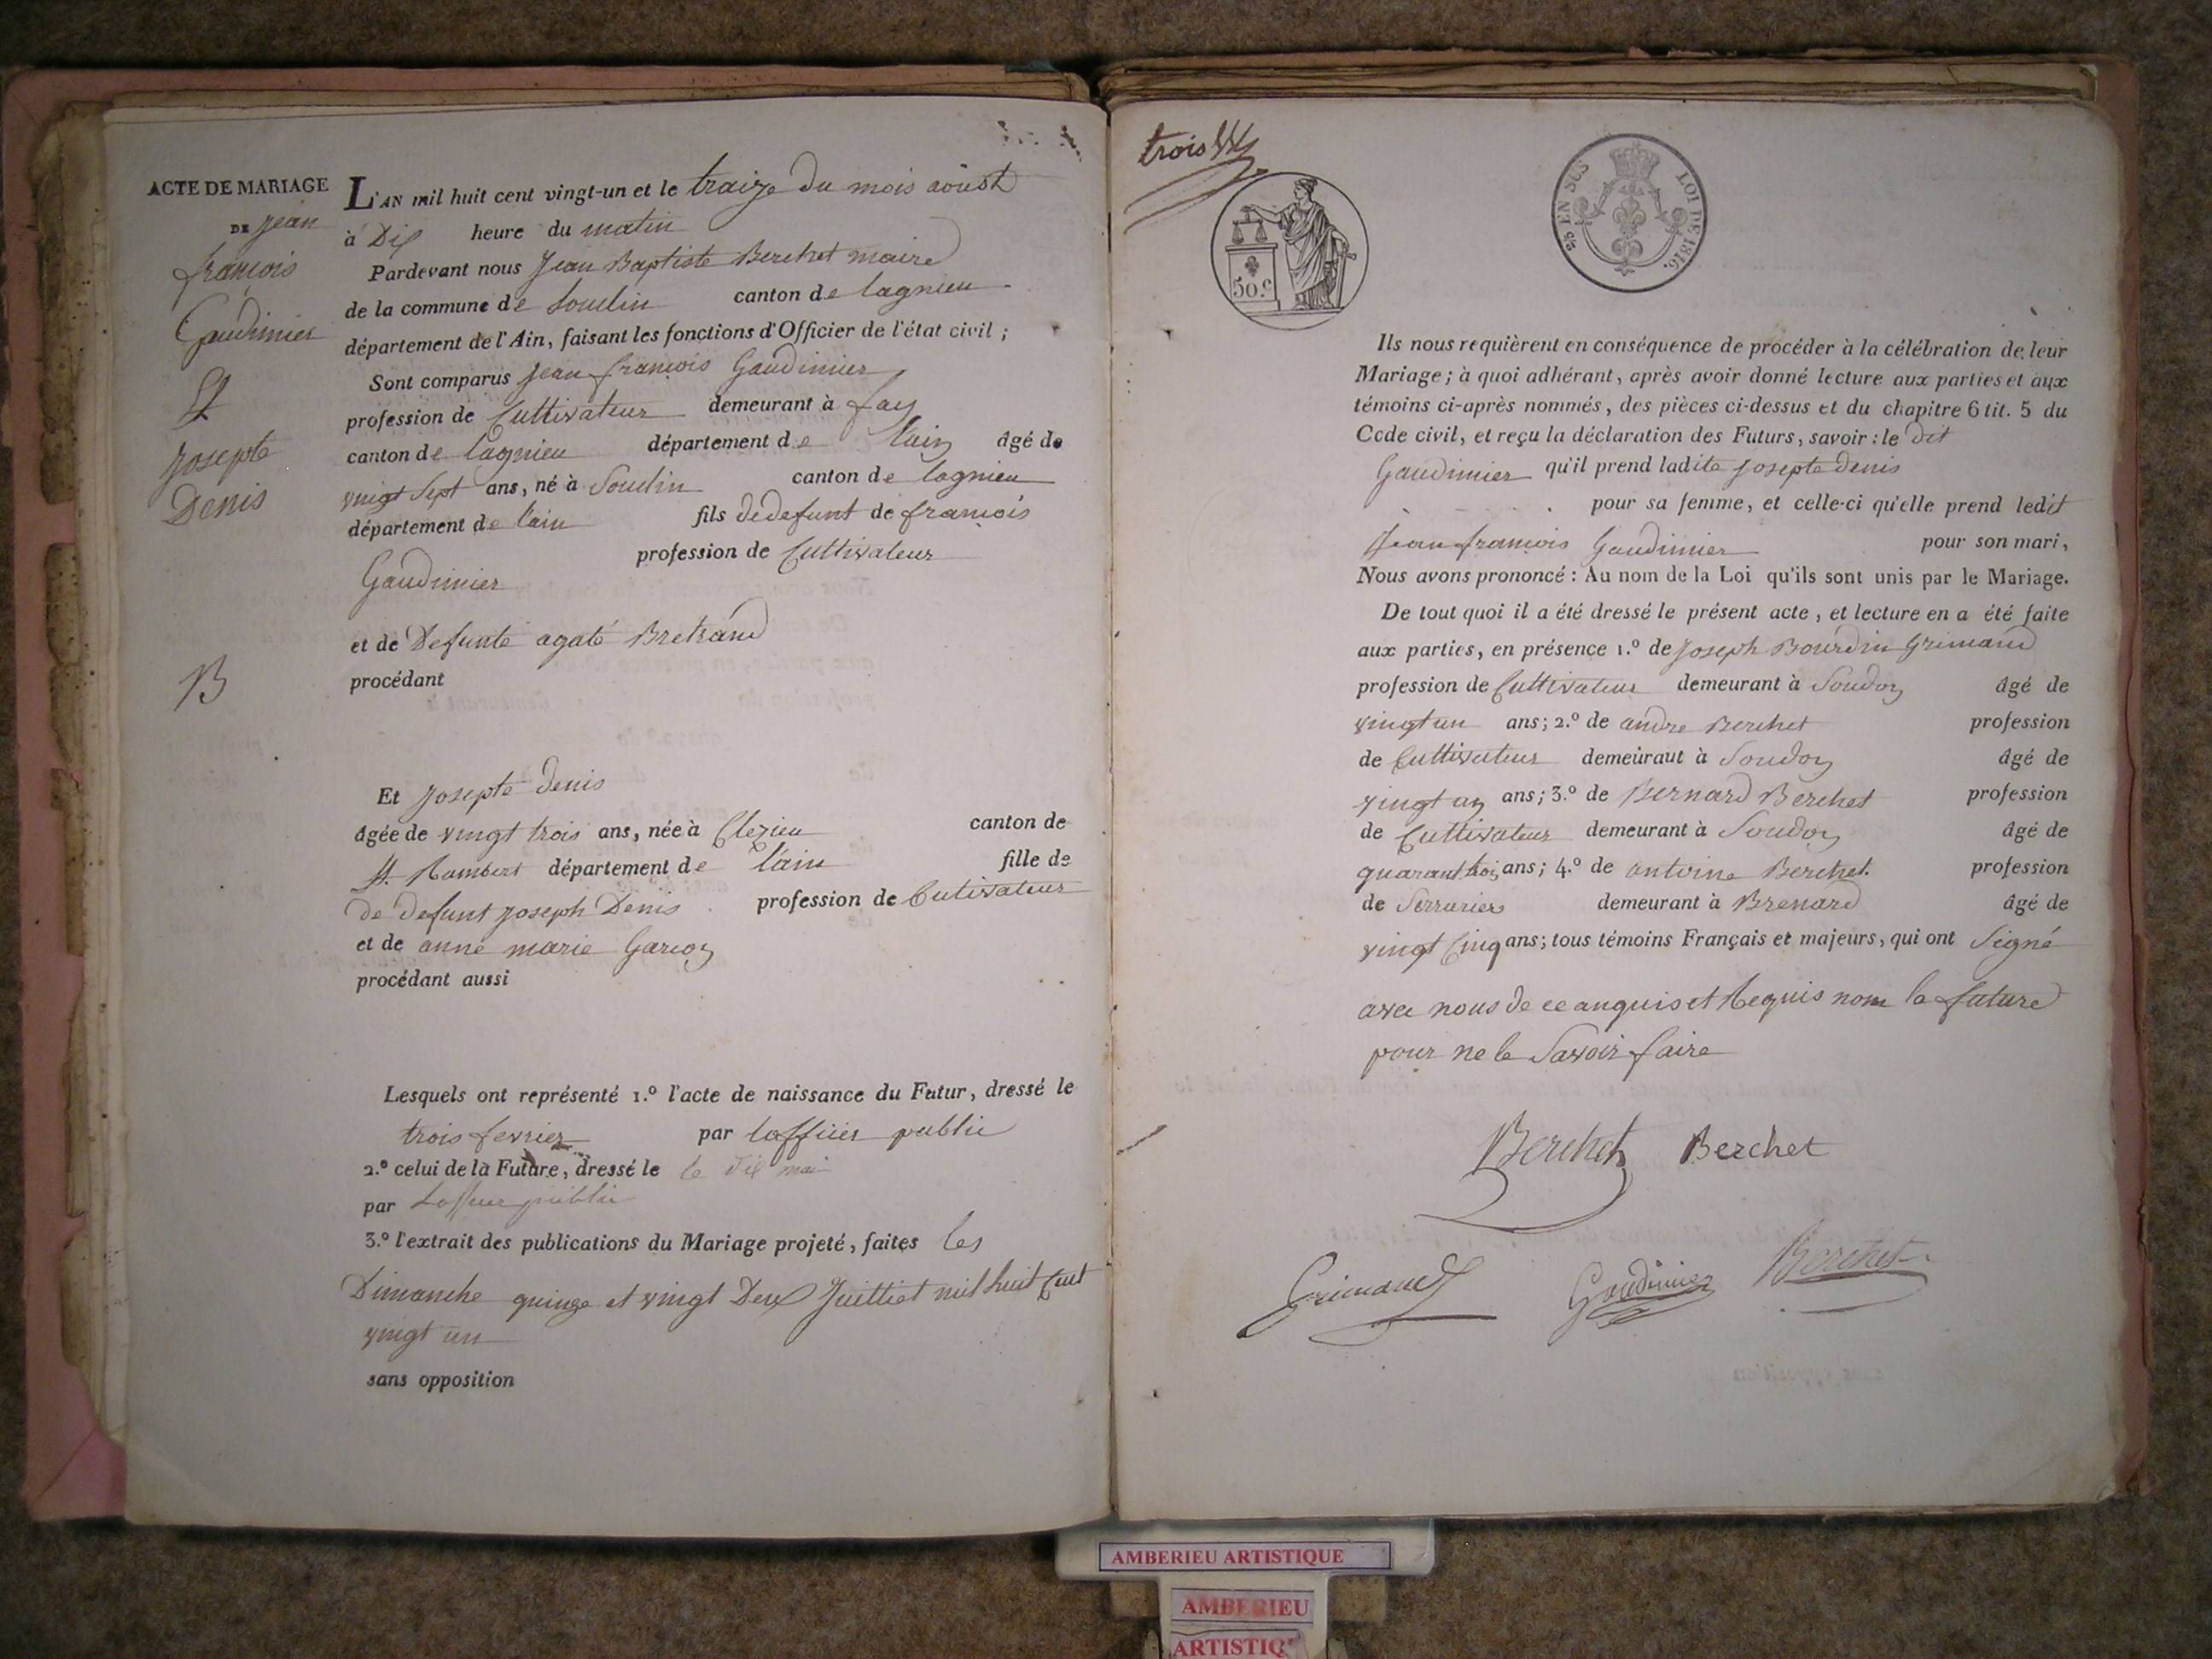 ACTE DE MARIAGE
DE jean
françois
Gaudinier
Et
josepte
Denis
B
L'AN mil huit cent vingt-un et le traize du mois aoust
à Dix heure du matin
Pardevant nous Jean Baptiste Berchet maire
de la commune de Soudin canton de lagnieu
département de l'Ain, faisant les fonctions d'Officier de l'état civil ;
Sont comparus jean françois Gaudinier
profession de Cultivateur demeurant à fay
canton de lagnieu département de lain âgé de
vingt Sept ans, né à Soudin canton de lagnieu
département de lain fils dedefunt de françois
profession de Cultivateur
Gaudinier
et de Defunte agate Bretrand
procédant
Et josepte denis
âgée de vingt trois ans, née à Clezieu canton de
St. Rambert département de lain fille de
de defunt joseph Denis profession de Cutivateur
et de anne marie Garcon
procédant aussi
Lesquels ont représenté 1.º l'acte de naissance du Futur, dressé le
trois fevrier par lofficier public
2.º celui de la Future, dressé le le dix mai
par Loffice public
3.º l'extrait des publications du Mariage projeté, faites les
Dimanche quinze et vingt Deux Juilliet mil huit Cent
vingt un
sans opposition
trois
50.c
c/s EN SUS LOI DE 1816.
Ils nous requièrent en conséquence de procéder à la célébration de leur
Mariage ; à quoi adhérant, après avoir donné lecture aux parties et aux
témoins ci-après nommés, des pièces ci-dessus et du chapitre 6 tit. 5 du
Code civil, et reçu la déclaration des Futurs, savoir : le dit
Gaudinier qu'il prend ladite josepte denis
pour sa femme, et celle-ci qu'elle prend ledit
jean françois Gaudinier pour son mari,
Nous avons prononcé : Au nom de la Loi qu'ils sont unis par le Mariage.
De tout quoi il a été dressé le présent acte, et lecture en a été faite
aux parties, en présence 1.º de joseph Bourdin Grimaud
profession de Cultivateur demeurant à Soudon âgé de
vingt un ans ; 2.º de andre Berchet profession
de Cultivateur demeuraut à Soudon âgé de
vingt un ans ; 3.º de Bernard Berchet profession
de Cultivateur demeurant à Soudon âgé de
quarant trois ans ; 4.º de antoine Berchet. profession
de Serrurier demeurant à Brenard âgé de
vingt Cinq ans ; tous témoins Français et majeurs, qui ont Signé
avec nous de ce anquis et Requis nom la future
pour ne le Savoir faire
Berchet Berchet
Grimaud Gaudinier Berchet
AMBERIEU ARTISTIQUE
AMBERIEU
ARTISTIQ